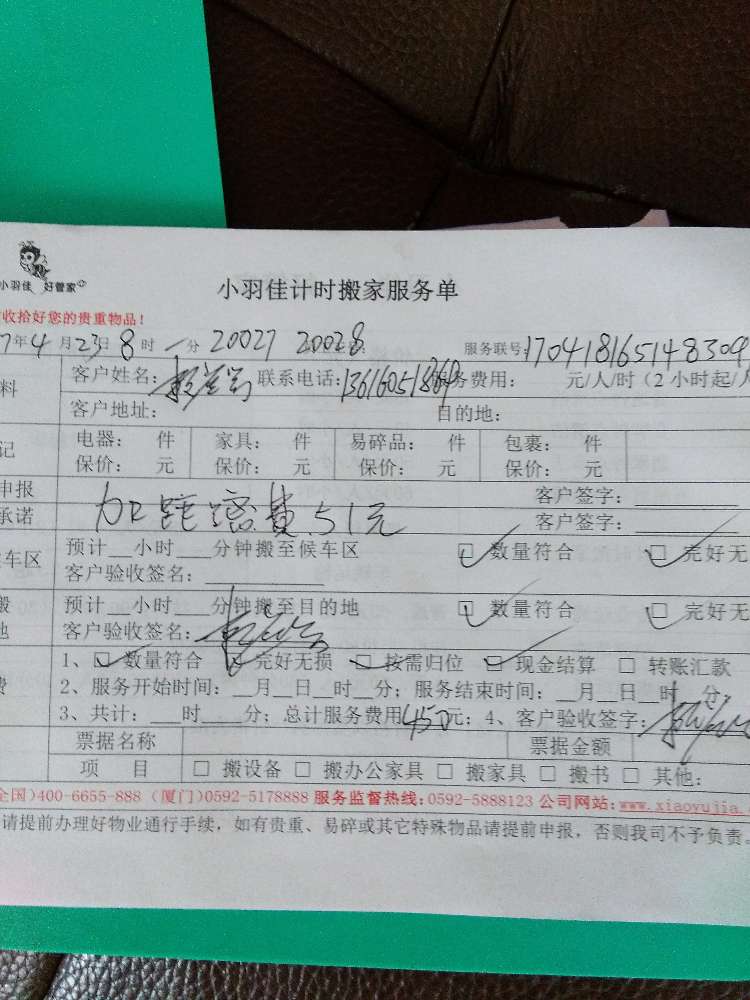 小羽佳 好管家
小羽佳计时搬家服务单
收拾好您的贵重物品！
7年4月23日8时 分 20027 20028 服务联号:170418165148309
料 客户姓名: 联系电话: 服务费用: 元/人/时（2小时起/人
客户地址: 目的地:
记 电器: 件 家具: 件 易碎品: 件 包裹: 件
保价: 元 保价: 元 保价: 元 保价: 元
申报 客户签字:
承诺 费51元 客户签字:
车区 预计__小时___分钟搬至候车区 数量符合 完好无
客户验收签名:
搬 预计__小时___分钟搬至目的地 数量符合 完好无
地 客户验收签名:
1、 数量符合 完好无损 按需归位 现金结算 □ 转账汇款 □
费 2、服务开始时间: __月__日__时__分; 服务结束时间: 月__日__时 分;
3、共计: ___时___分; 总计服务费用450元; 4、客户验收签字:
票据名称 票据金额
项 目 □ 搬设备 □ 搬办公家具 □ 搬家具 □ 搬书 □ 其他:
全国)400-6655-888 (厦门)0592-5178888 服务监督热线:0592-5888123 公司网站:www.xiaoyujia.
请提前办理好物业通行手续，如有贵重、易碎或其它特殊物品请提前申报，否则我司不予负责。